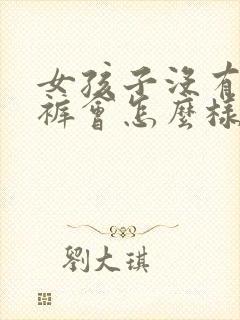 女孩子沒有
褲會怎麼樣
劉大琪